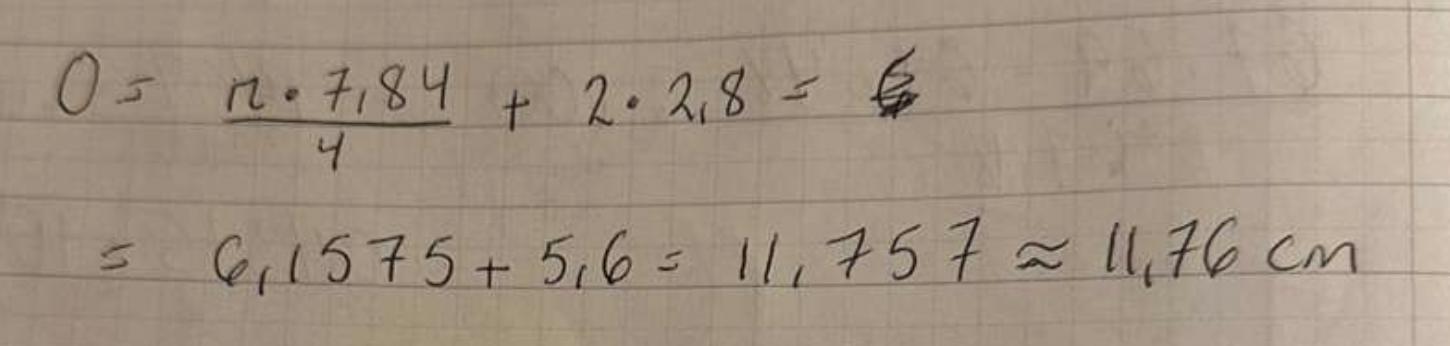 O = π · 7,84 / 4 + 2 · 2,8 =
= 6,1575 + 5,6 = 11,757 ≈ 11,76 cm